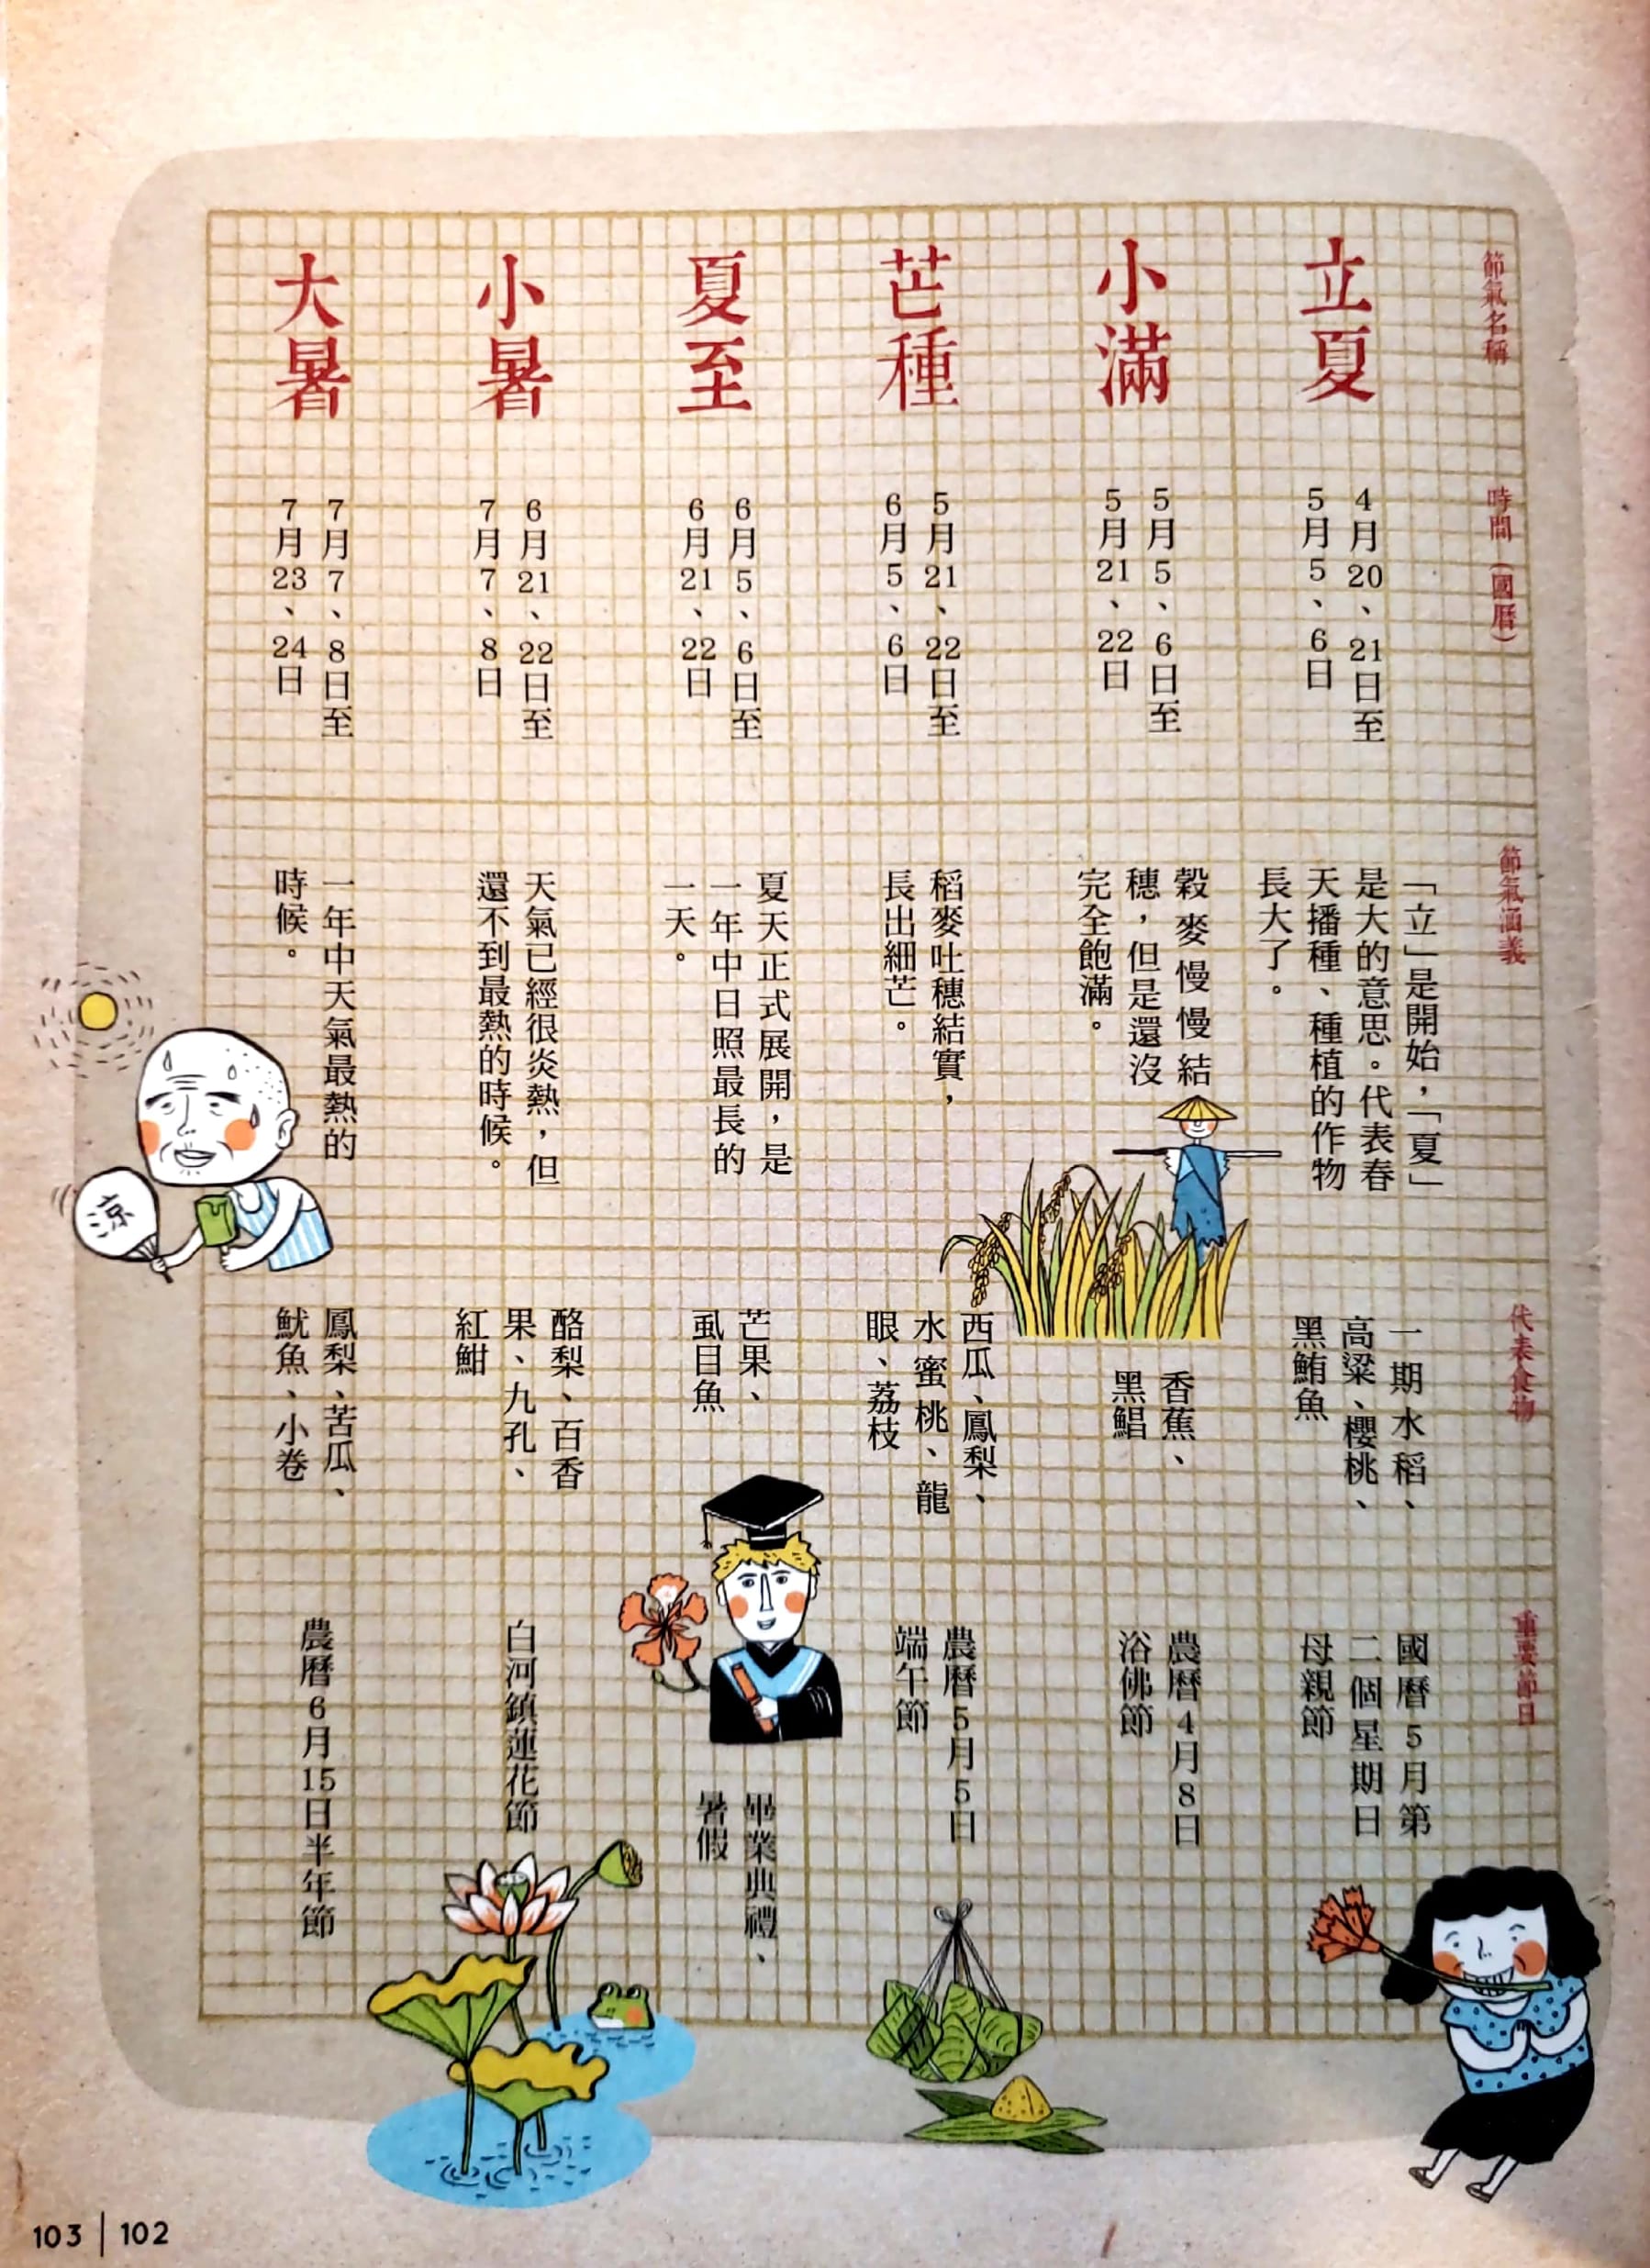 節氣名稱
時間(國曆)
節氣涵義
代表食物
重要節日
立夏
4月20、21日至
5月5、6日
「立」是開始,「夏」
是大的意思。代表春
天播種、種植的作物
長大了。
一期水稻、
高粱、櫻桃、
黑鮪魚
國曆5月第
二個星期日
母親節
小滿
5月5、6日至
5月21、22日
穀麥慢慢結
穗,但是還沒
完全飽滿。
香蕉、
黑鯧
農曆4月8日
浴佛節
芒種
5月21、22日至
6月5、6日
稻麥吐穗結實,
長出細芒。
西瓜、鳳梨、
水蜜桃、龍
眼、荔枝
農曆5月5日
端午節
夏至
6月5、6日至
6月21、22日
夏天正式展開,是
一年中日照最長的
一天。
芒果、
虱目魚
畢業典禮、
暑假
小暑
6月21、22日至
7月7、8日
天氣已經很炎熱,但
還不到最熱的時候。
酪梨、百香
果、九孔、
紅魽
白河鎮蓮花節
大暑
7月7、8日至
7月23、24日
一年中天氣最熱的
時候。
鳳梨、苦瓜、
魷魚、小卷
農曆6月15日半年節
涼
103 | 102